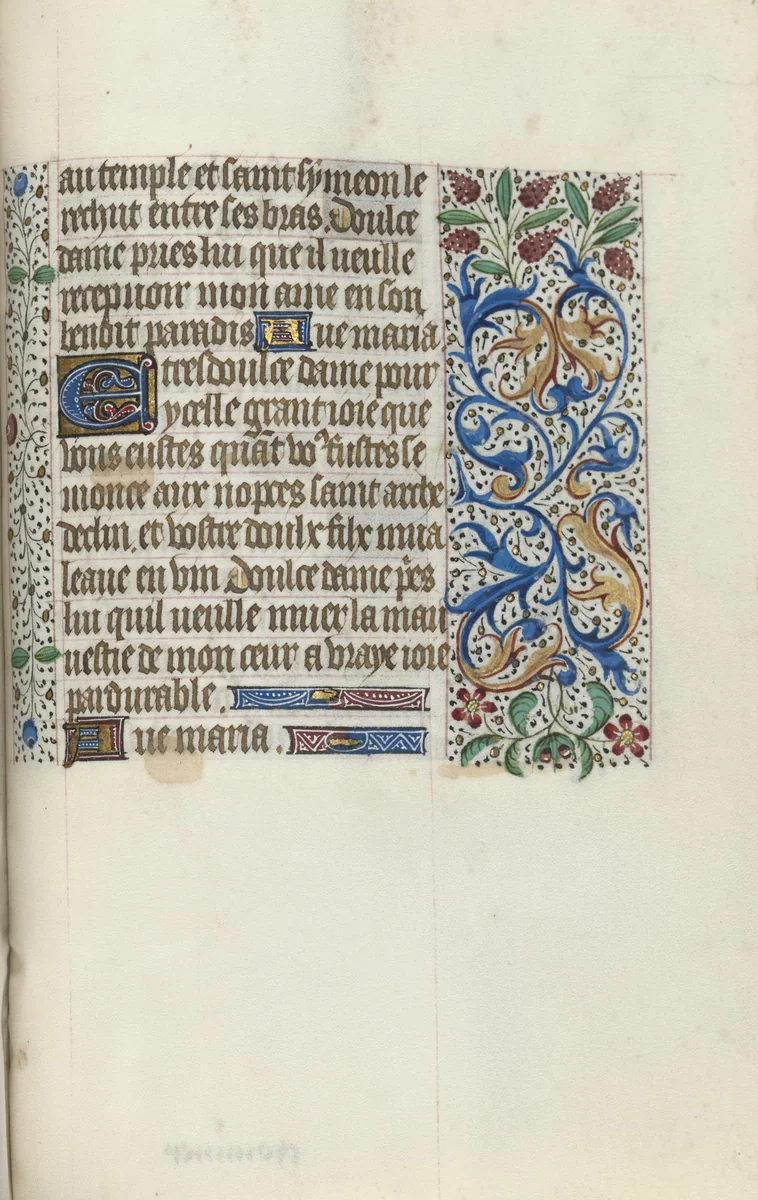 au temple et saint symeon le
rechut entre ses bras. Doulce
dame pries lui que il veulle
recepuoir mon ame en son
benoit paradis Aue maria
E tresdoulce dame pour
ycelle grant ioie que
vous eustes quãt voꝰ fustes se
monce aux nopces saint arche
declin. et vostre doulx filx mua
leaue en vin Doulce dame p̃es
lui quil veulle muer la mau
uestie de mon ceur a vraye ioie
pardurable.
Aue maria.